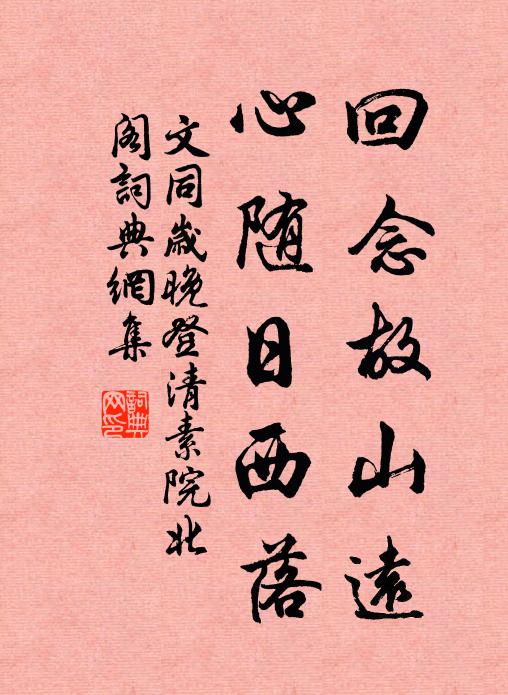 回念故山遠
心随日西落
文同歲晚登清素院北
閣詞典網集
詞典网印